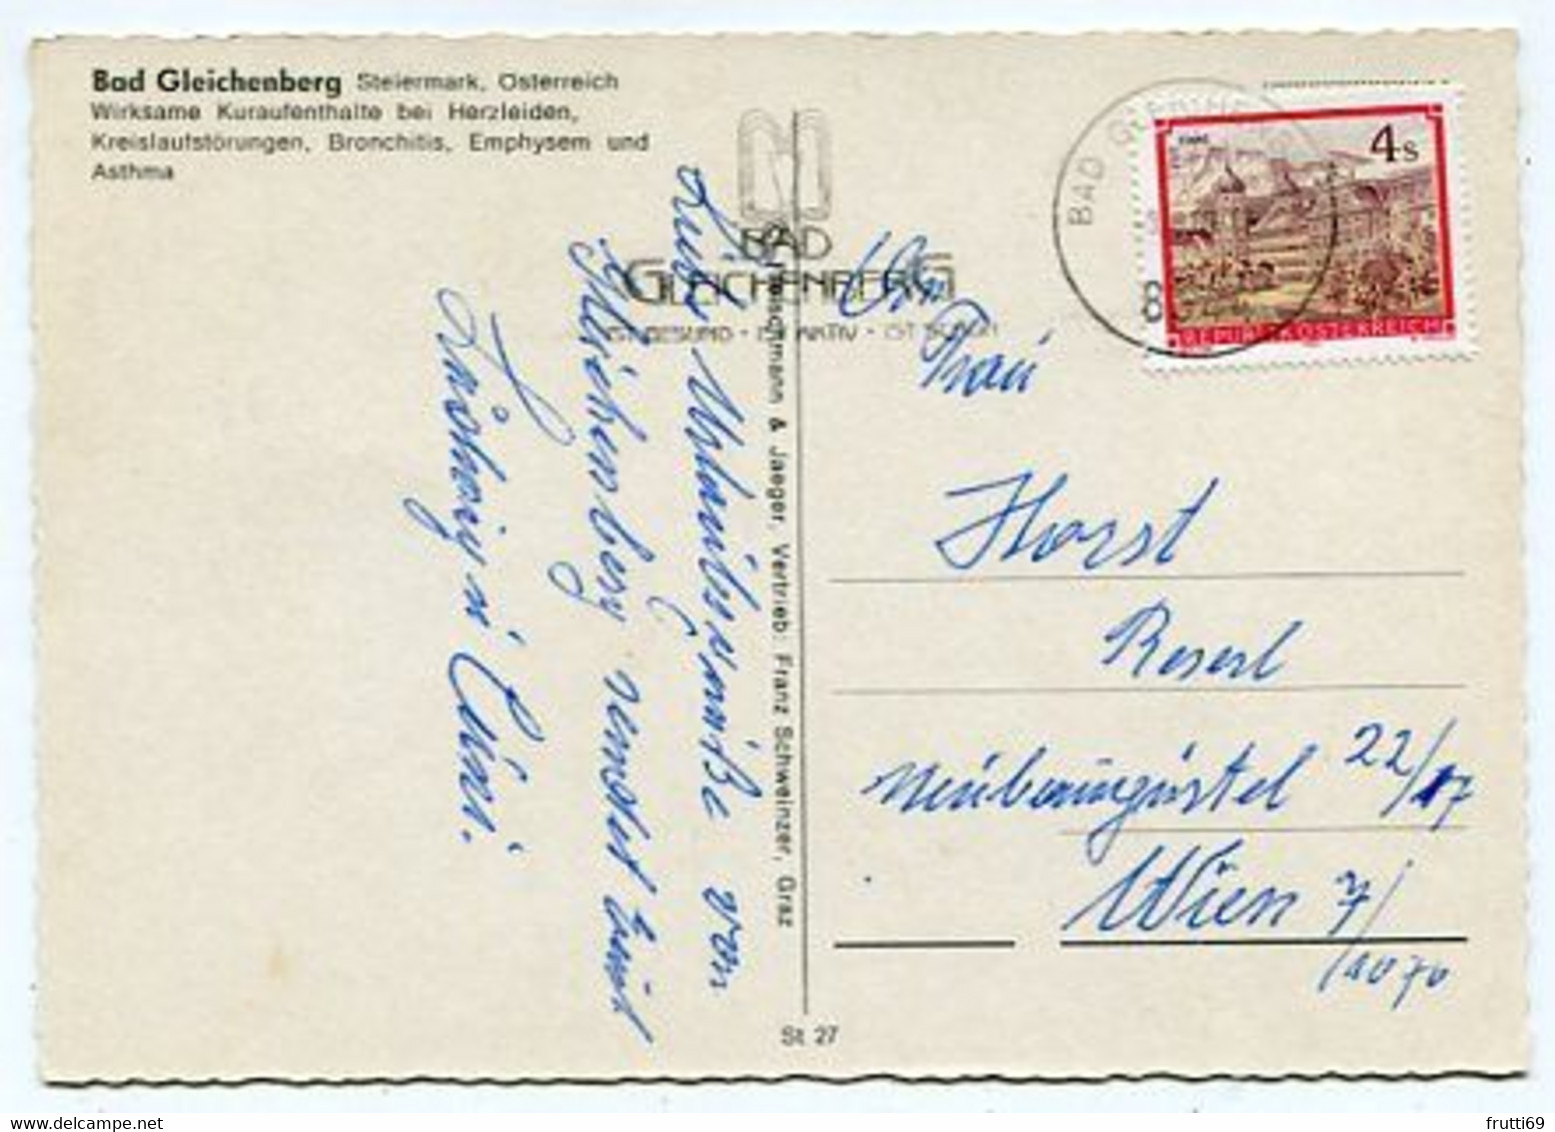 Bad Gleichenberg Steiermark, Österreich
Wirksame Kuraufenthalte bei Herzleiden,
Kreislaufstörungen, Bronchitis, Emphysem und
Asthma
BAD
GLEICHENBERG
IST GESUND · IST AKTIV · IST SCHÖN
BAD GLEICHENBERG
4 S
REPUBLIK ÖSTERREICH
Liebe Urlaubsgrüße von
Gleichenberg sendet Euch
& Jaeger, Vertrieb: Franz Schweinzer, Graz
An
Frau
Horst
Reserl
Neubaugürtel 22/17
Wien 7/
1070
St 27
frutti69